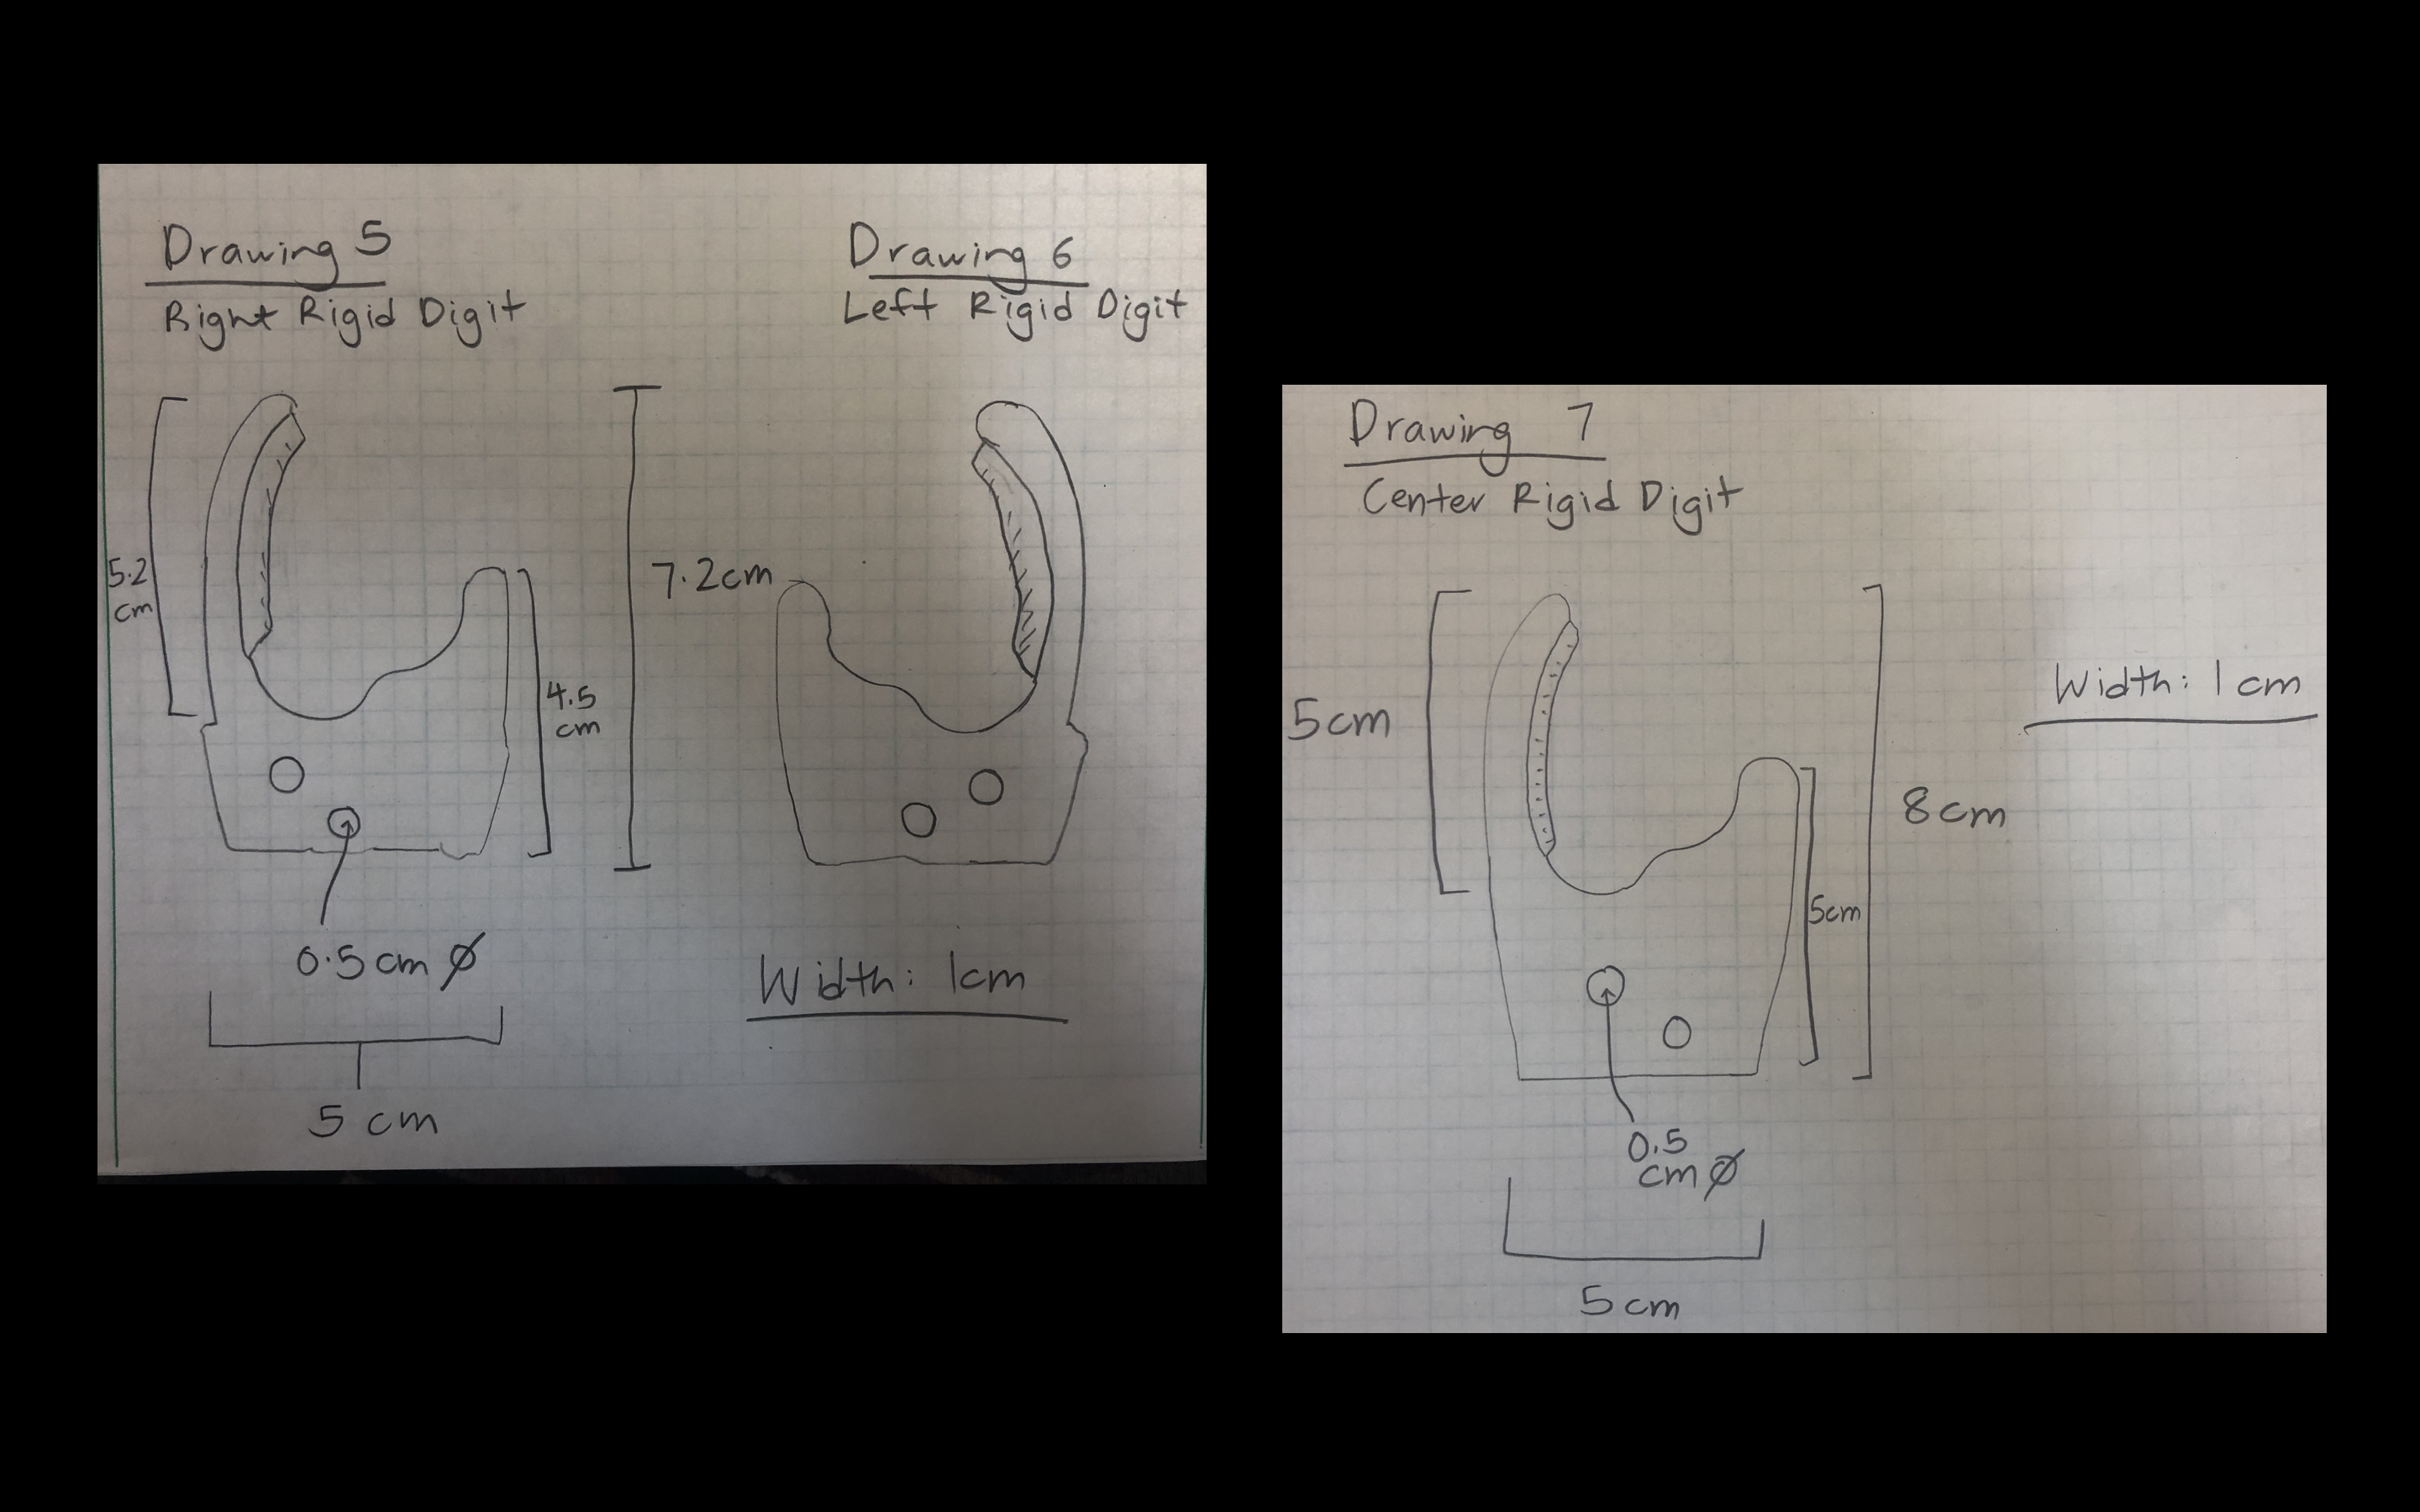 Drawing 5
Right Rigid Digit
5.2
cm
4.5
cm
0.5cm Ø
5 cm
7.2cm
Drawing 6
Left Rigid Digit
Width: 1cm
Drawing 7
Center Rigid Digit
5cm
8cm
5cm
Width: 1cm
0.5
cm Ø
5cm